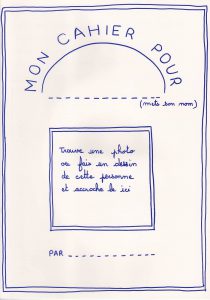 MON CAHIER POUR
(mets son nom)
Trouve une photo
ou fais en dessin
de cette personne
et accroche le ici
PAR